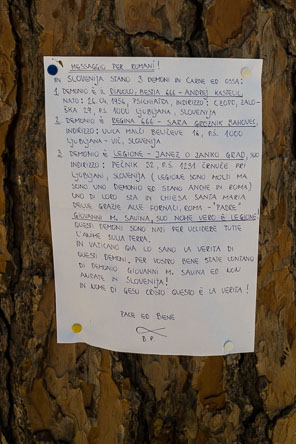 MESSAGGIO PER ROMANI!
IN SLOVENIJA STANO 3 DEMONI IN CARNE ED OSSA:
1. DEMONIO È IL DIAVOLO, BESTIA 666 - ANDREJ KASTELIC,
NATO: 26.04.1956, PSICHIATRA, INDIRIZZO: CZOPD, ZALO-
ŠKA 29, P.S. 1000 LJUBLJANA, SLOVENIJA
2. DEMONIO È REGINA 666 - SARA GROZNIK BAHOVEC,
INDIRIZZO: ULICA MALČI BELIČEVE 16, P.S. 1000
LJUBLJANA - VIČ, SLOVENIJA
3. DEMONIO È LEGIONE - JANEZ O JANKO GRAD, SUO
INDIRIZZO: PEČNIK 32, P.S. 1231 ČRNUČE PRI
LJUBLJANI, SLOVENIJA (LEGIONE SONO MOLTI MA
SONO UNO DEMONIO ED STANO ANCHE IN ROMA)
UNO DI LORO STA IN CHIESA SANTA MARIA
DELLE GRAZIE ALLE FORNACI, ROMA - "PADRE"
GIOVANNI M. SAVINA, SUO NOME VERO È LEGIONE!
QUESTI DEMONI SONO NATI PER UCCIDERE TUTTE
L'ANIME SULLA TERRA.
IN VATICANO GIÀ LO SANO LA VERITÀ DI
QUESTI DEMONI. PER VOSTRO BENE STATE LONTANO
DI DEMONIO GIOVANNI M. SAVINA ED NON
ANDATE IN SLOVENIJA!
IN NOME DI GESÙ CRISTO QUESTO È LA VERITÀ!
PACE ED BENE
B.P.